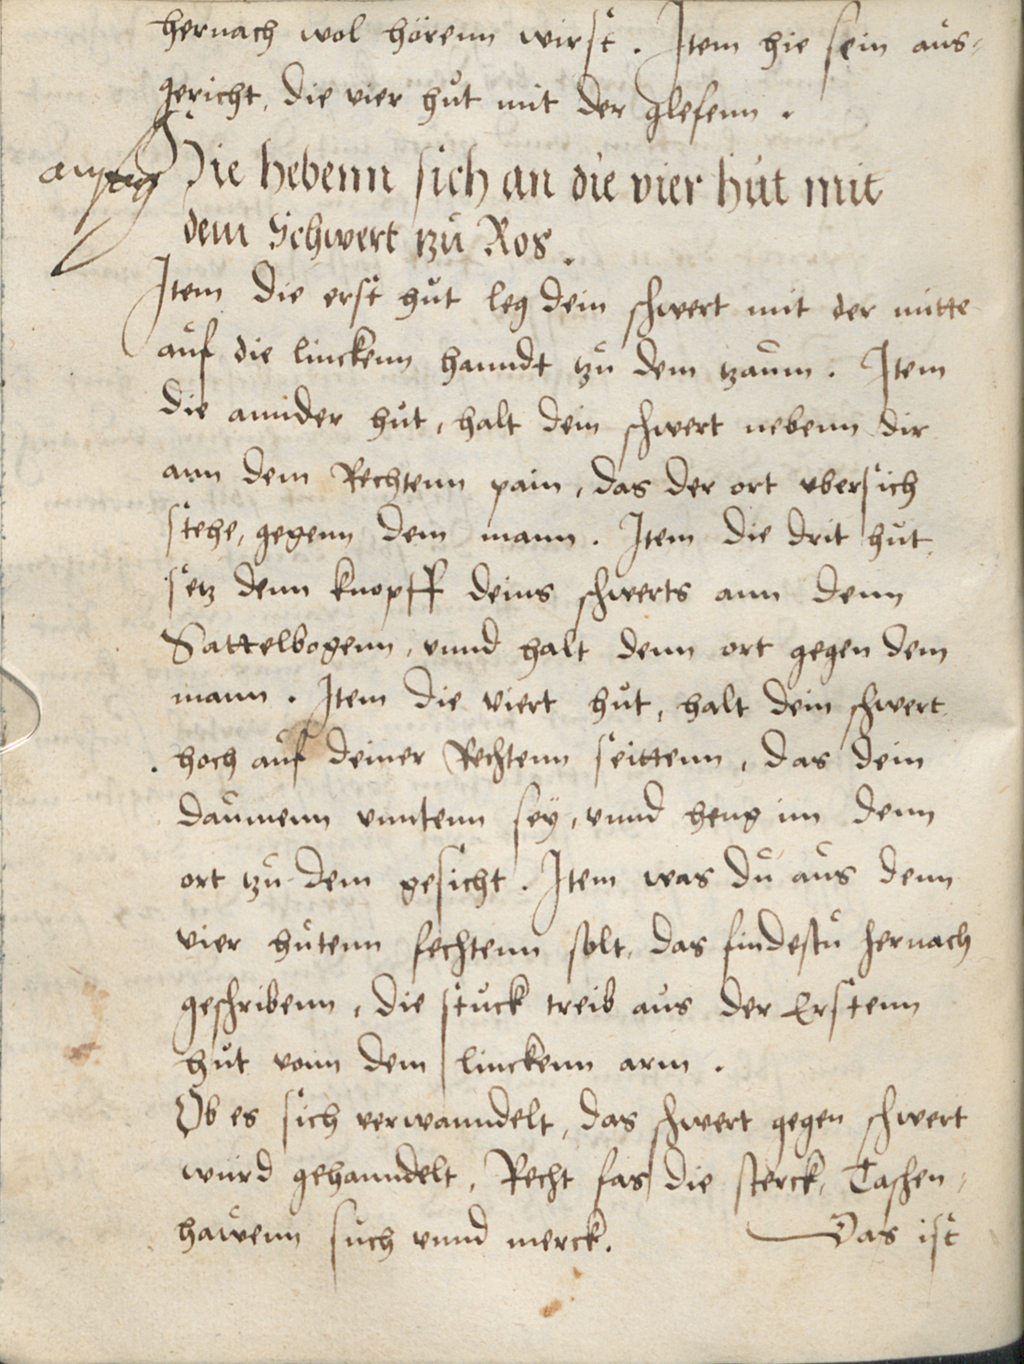 hernach wol hörenn wirst. Item hie sein aus-
gericht, die vier hůt mit der glefenn.
Hie hebenn sich an die vier hůt mit
dem Schwert tzů Ros.
Item die erst hůt leg dein schwert mit der mitte
aůf die linckenn hanndt tzů dem tzaům. Item
die annder hůt, halt dein schwert nebenn dir
ann dem Rechtenn pain, das der ort vbersich
stehe, gegenn dem mann. Item die drit hůt
setz denn knopff deins schwerts ann denn
Sattelbogenn, vnnd halt denn ort gegen dem
mann. Item die viert hůt, halt dein schwert
hoch aůf deiner Rechtenn seittenn, das dein
daůmenn vnntenn seÿ, vnnd heng im denn
ort tzů dem gesicht. Item was dů aůs denn
vier hůtenn fechtenn solt, das findestů hernach
geschribenn, die stůck treib aůs der Erstenn
hůt vonn dem linckenn arm.
Ob es sich verwanndelt, das schwert gegen schwert
wůrd gehanndelt, Recht fas die sterck, Taschen-
haẅenn sůch vnnd merck. Das ist